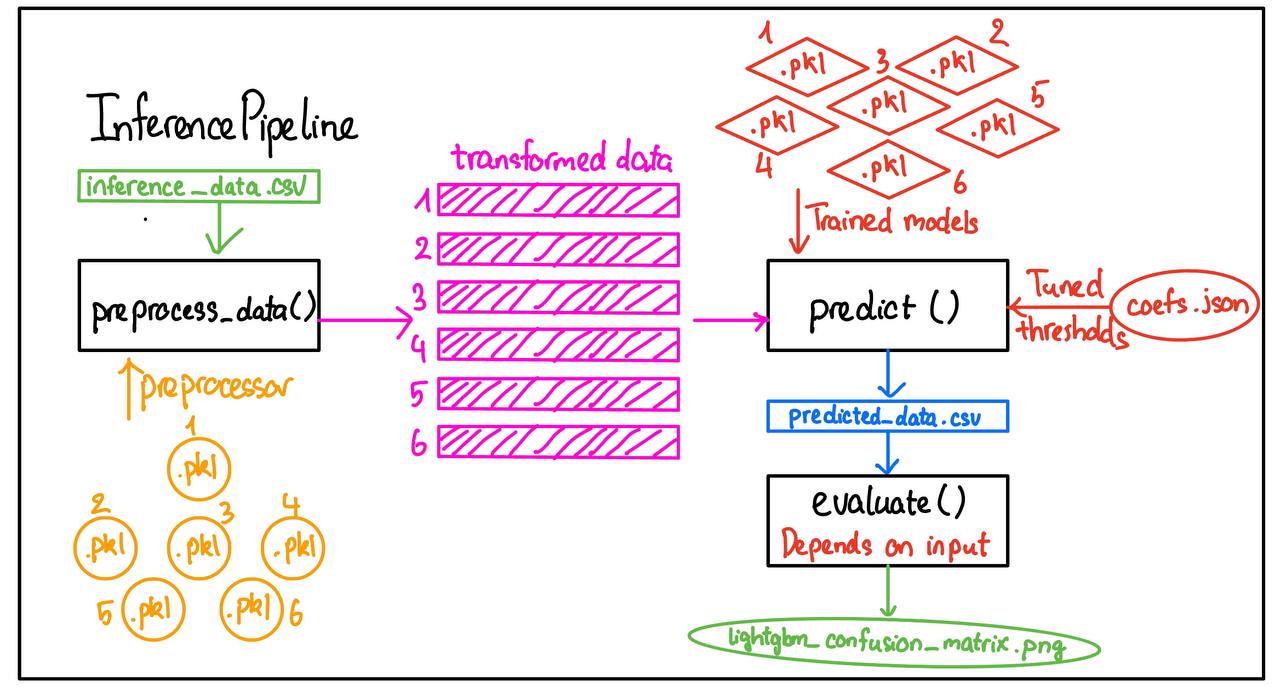 InferencePipeline
inference_data.csv
preprocess_data()
preprocessor
1
.pkl
2
.pkl
3
.pkl
4
.pkl
5
.pkl
.pkl
6
transformed data
1
2
3
4
5
6
1
.pkl
2
.pkl
3
.pkl
.pkl
4
5
.pkl
.pkl
6
Trained models
predict ()
Tuned
thresholds
coefs.json
predicted_data.csv
evaluate()
Depends on input
lightgbm_confusion_matrix.png